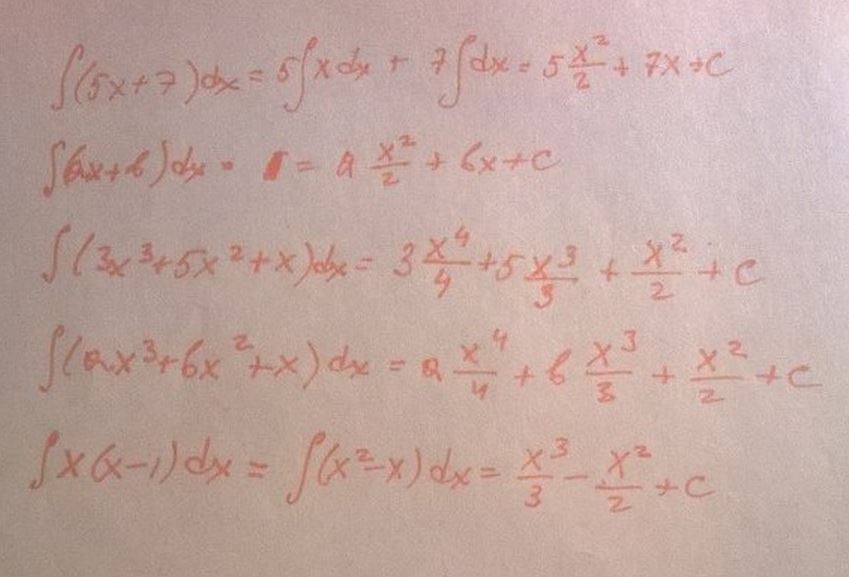 ∫(5x+7)dx = 5∫xdx + 7∫dx = 5 x²/2 + 7x + C
∫(ax+b)dx = a x²/2 + bx + C
∫(3x³+5x²+x)dx = 3 x⁴/4 + 5 x³/3 + x²/2 + C
∫(ax³+bx²+x)dx = a x⁴/4 + b x³/3 + x²/2 + C
∫x(x-1)dx = ∫(x²-x)dx = x³/3 - x²/2 + C